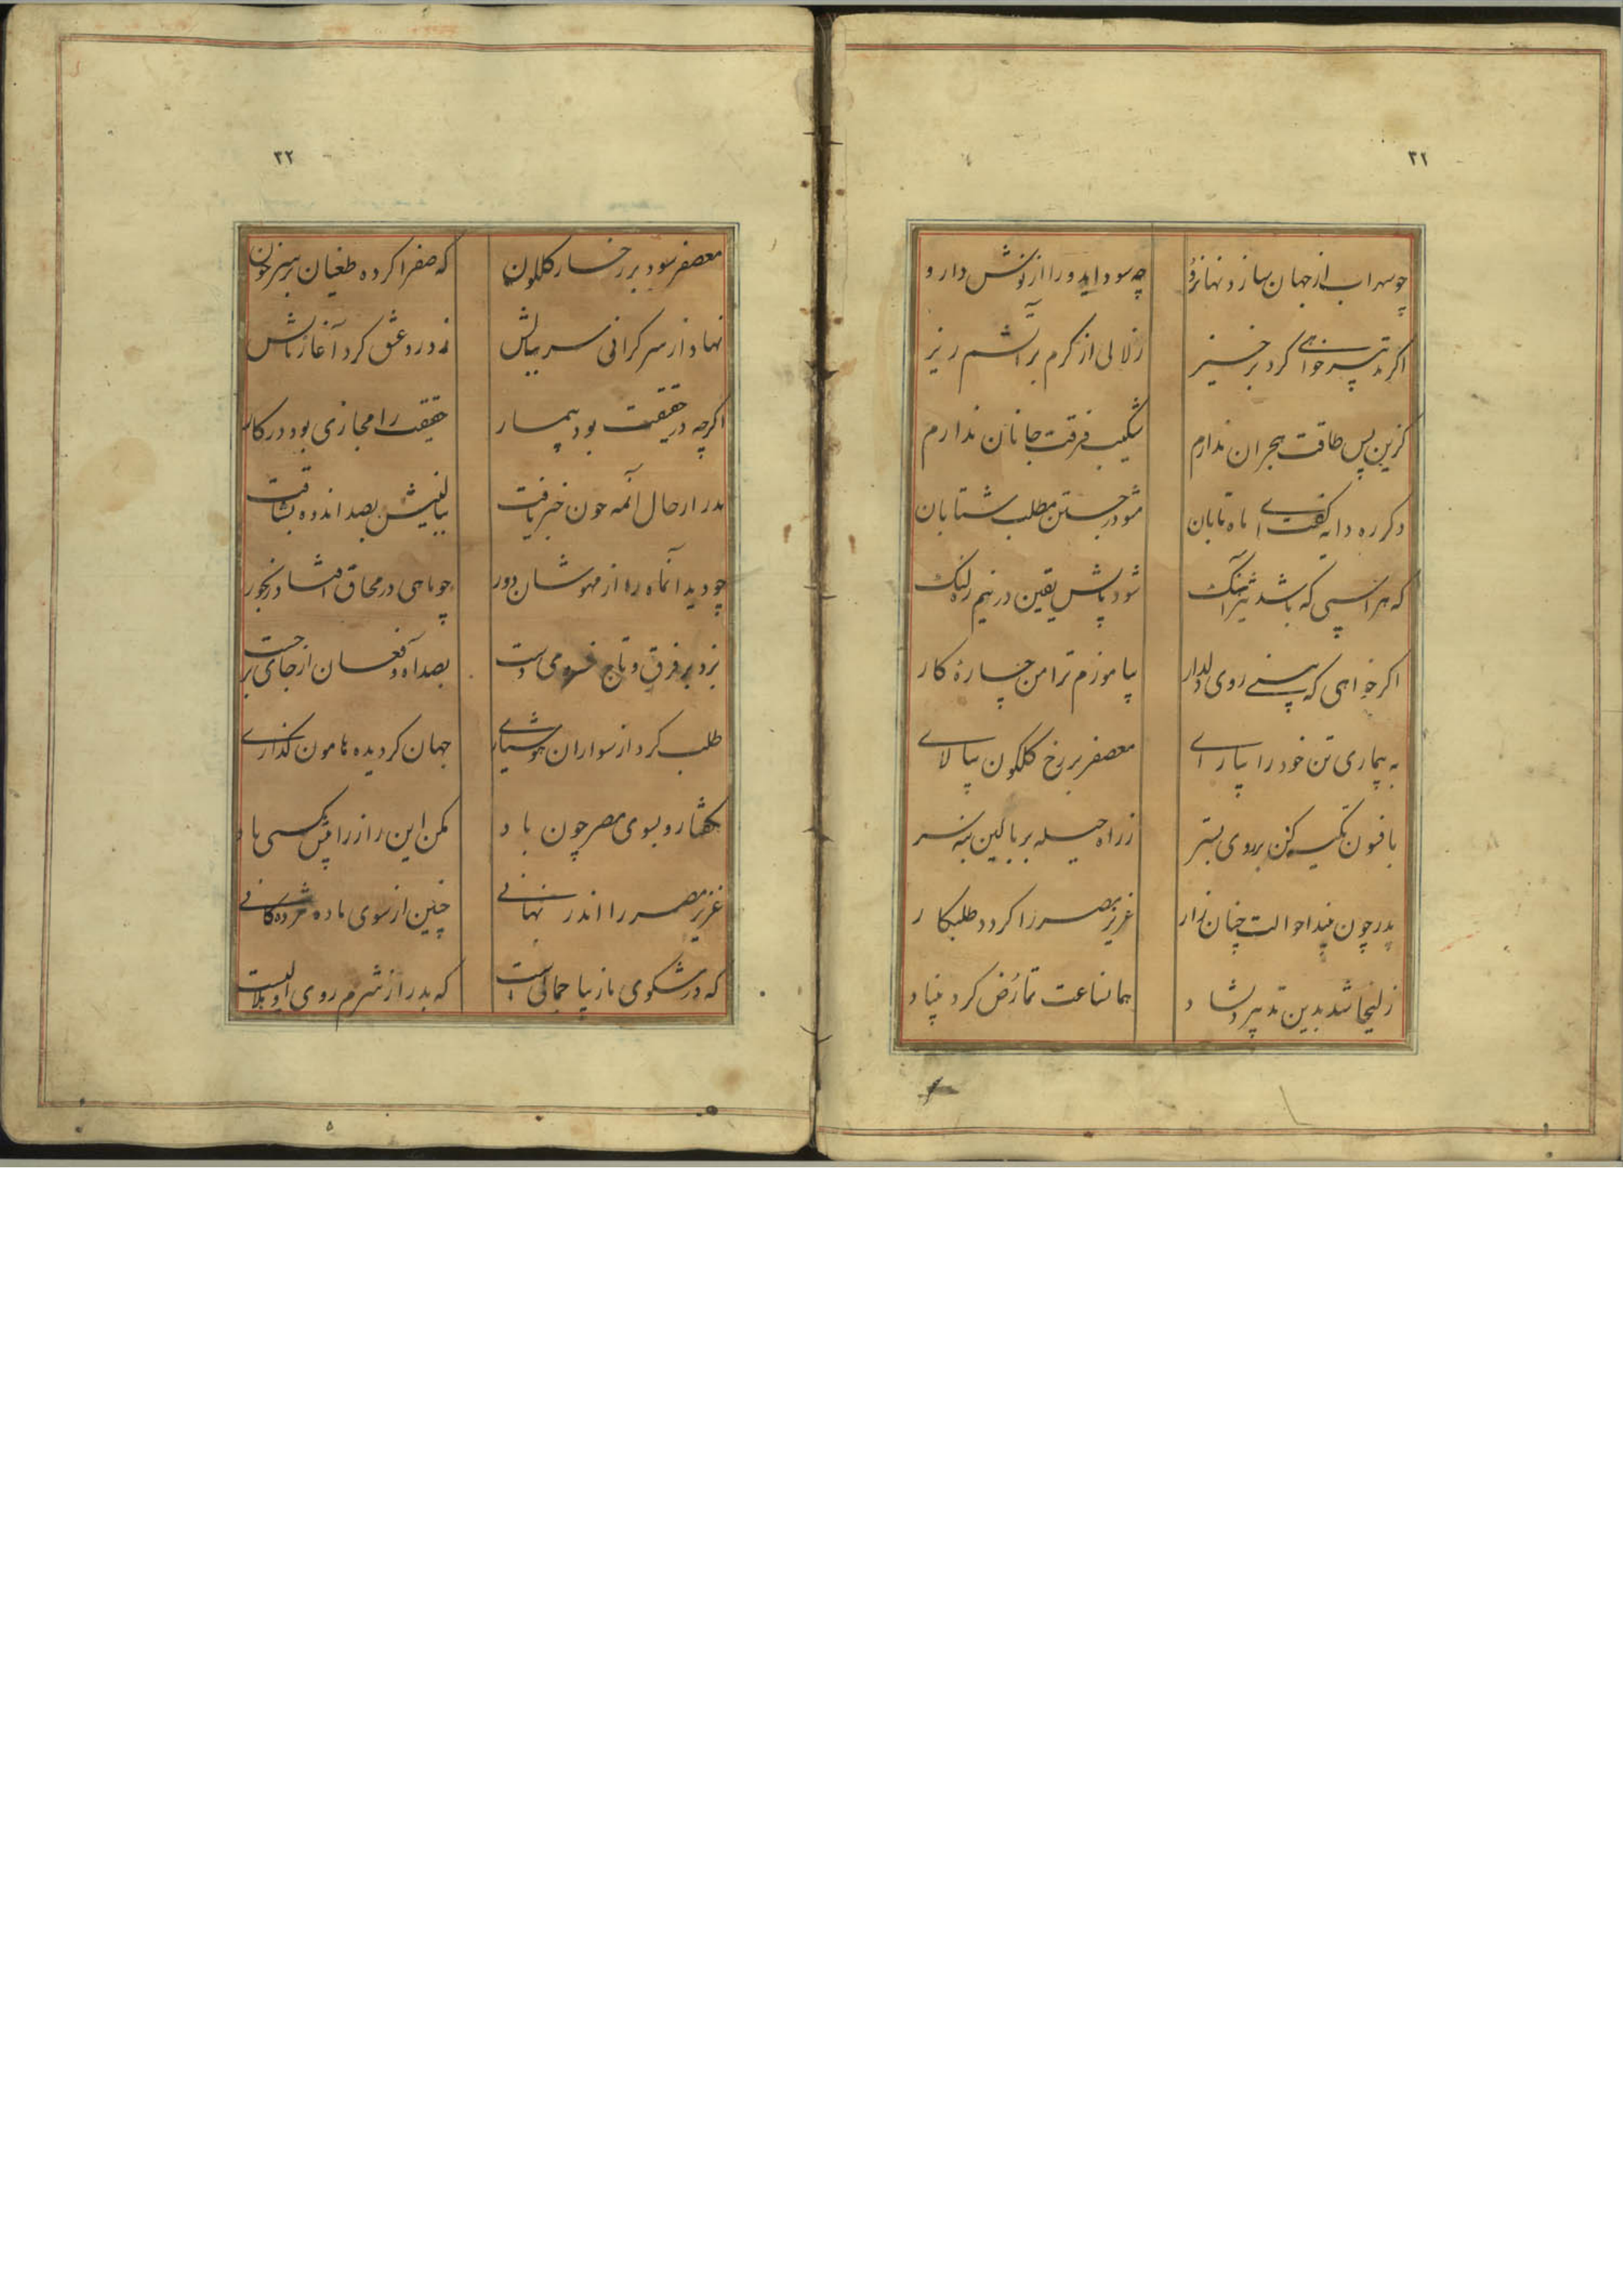 ۳۱
چو سهراب از جهان سازد نهان رو چه سود آید ورا از نوش دارو
اگر تدبیر خواهی کرد برخیز زلالی از کرم بر آتشم ریز
کزین پس طاقت هجران ندارم شکیب فرقت جانان ندارم
دگر ره دایه گفت ای ماه تابان مشو در جستن مطلب شتابان
که هر اسبی که باشد تیز آهنگ شود پایش یقین در نیم ره لنگ
اگر خواهی که بینی روی دلدار بیاموزم ترا من چارهٔ کار
به بیماری تن خود را بیارای معصفر بر رخ گلگون بیالای
بافسون تکیه کن بر روی بستر ز راه حیله بر بالین بنه سر
پدر چون بیند احوالت چنان زار عزیز مصر را گردد طلبکار
زلیخا شد بدین تدبیر دلشاد همانساعت تمارض کرد بنیاد
۳۲
معصفر سود بر رخسار گلگون که صفرا کرده طغیان بر سر خون
نهاد از سر گرانی سر ببالش ز درد عشق کرد آغاز نالش
اگرچه در حقیقت بود بیمار حقیقت را مجازی بود در کار
پدر از حال آنمه چون خبر یافت ببالینش بصد اندوه بشتافت
چو دید آنماه را از مهوشان دور چو ماهی در محاق افتاد رنجور
بزد بر فرق و تاج خسروی دست بصد آه و فغان از جای برجست
طلب کرد از سواران هوشیاری جهان گردیده هامون گذاری
بگفتا رو بسوی مصر چون باد مکن این راز را پیش کسی یاد
عزیز مصر را اندر نهانی چنین از سوی ما ده مژدگانی
که در مشکوی ما زیبا جمالی است که بدر از شرم روی او هلالیست